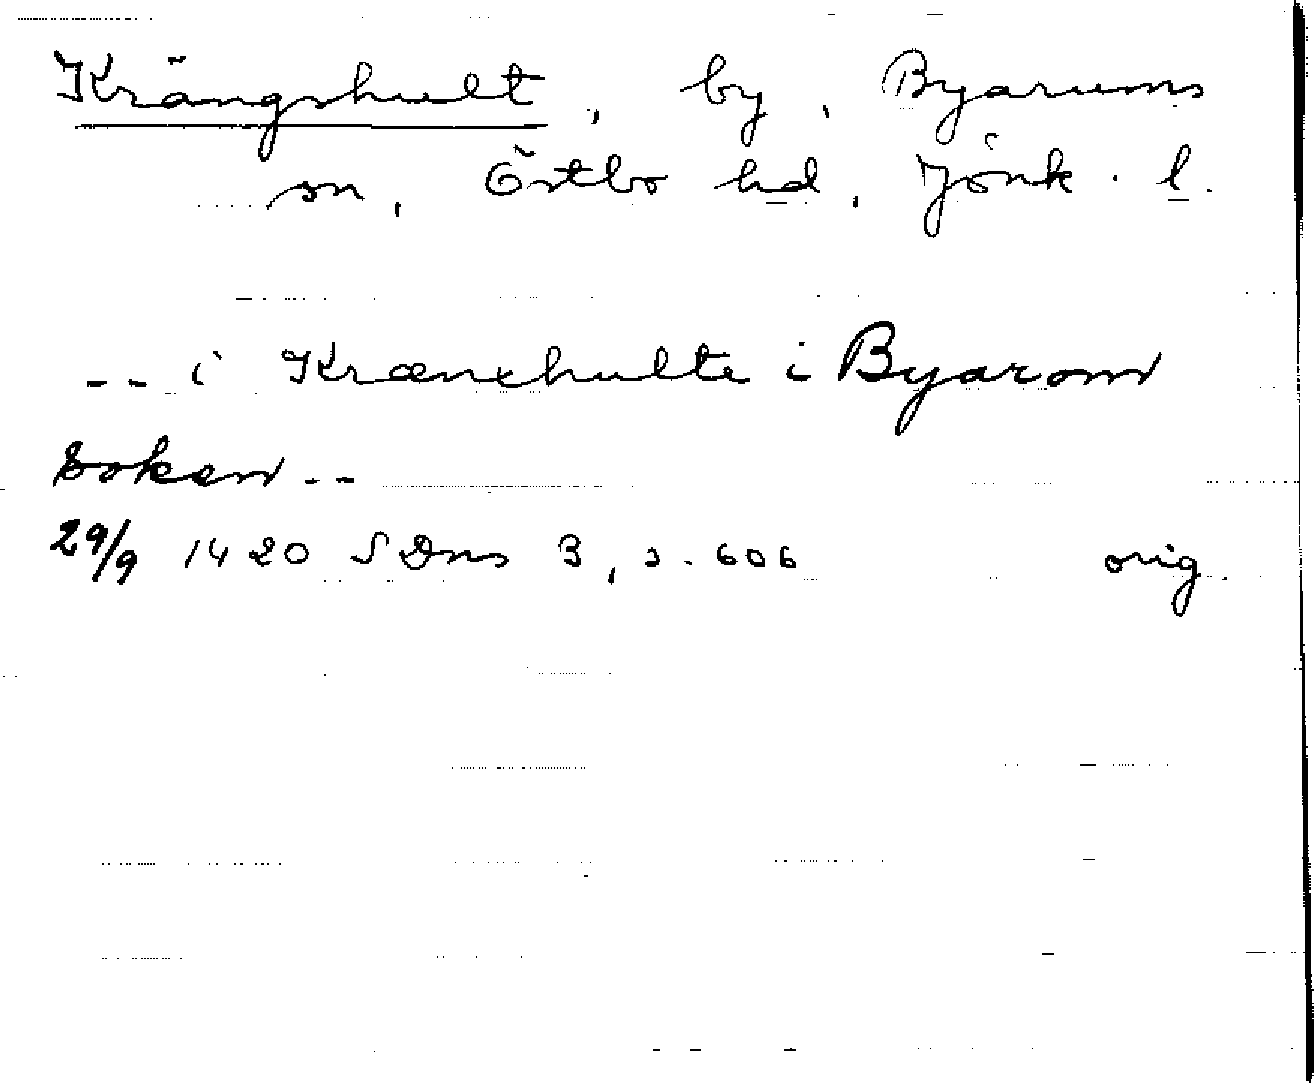 Krängshult, by, Byarums
sn, Östbo hd, Jönk. l.
-- i Krænxhulte i Byarom
soken --
29/9 1420 SDns 3, s. 606 orig.